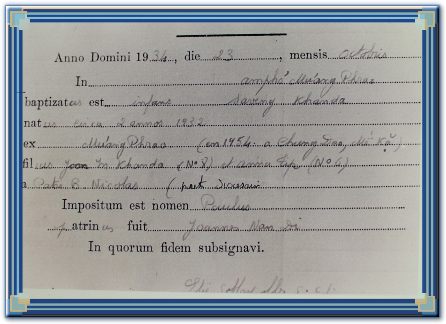 Anno Domini 1934, die 23, mensis octobris
In amphö Mu'ang Phrao
baptizatus est infans Saveng Khanda
natus circa 2 annos 1932
ex Mu'ang Phrao (en 1954 a Chieng Dao,
filius Joan M. Khanda (No 8) et
a Patre B. Nicolas (
Impositum est nomen Paulus
patrinus fuit Joannes Nan Di
In quorum fidem subsignavi.